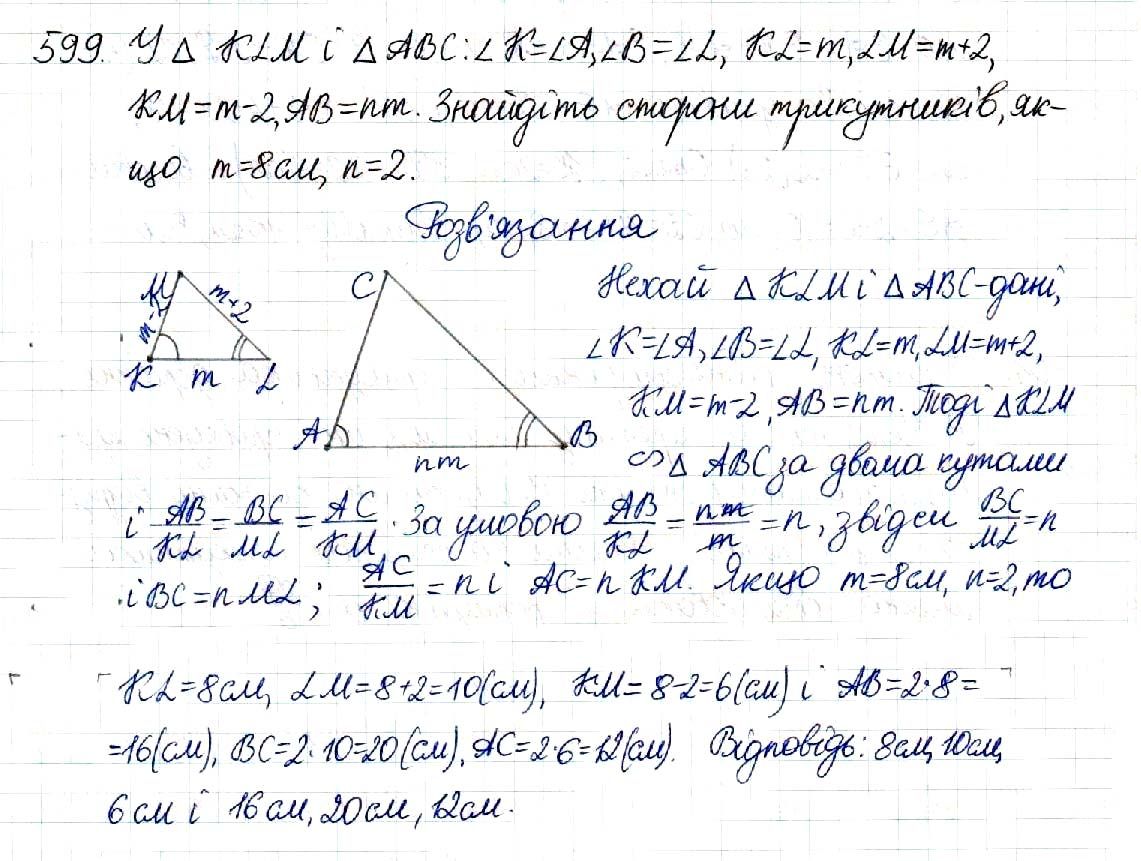 599. У △ KLM і △ ABC: ∠K=∠A, ∠B=∠L, KL=m, LM=m+2,
KM=m-2, AB=nm. Знайдіть сторони трикутників, як-
що m=8см, n=2.
Розв'язання
M m-2 m+2 K m L
C A B nm
Нехай △ KLM і △ ABC-дані,
∠K=∠A, ∠B=∠L, KL=m, LM=m+2,
KM=m-2, AB=nm. Тоді △KLM
∽ △ ABC за двома кутами
і AB/KL = BC/ML = AC/KM. За умовою AB/KL = nm/m = n, звідси BC/ML = n
і BC=n ML; AC/KM = n і AC=n KM. Якщо m=8см, n=2, то
KL=8см, LM=8+2=10(см), KM=8-2=6(см) і AB=2·8=
=16(см), BC=2·10=20(см), AC=2·6=12(см). Відповідь: 8см, 10см,
6см і 16см, 20см, 12см.